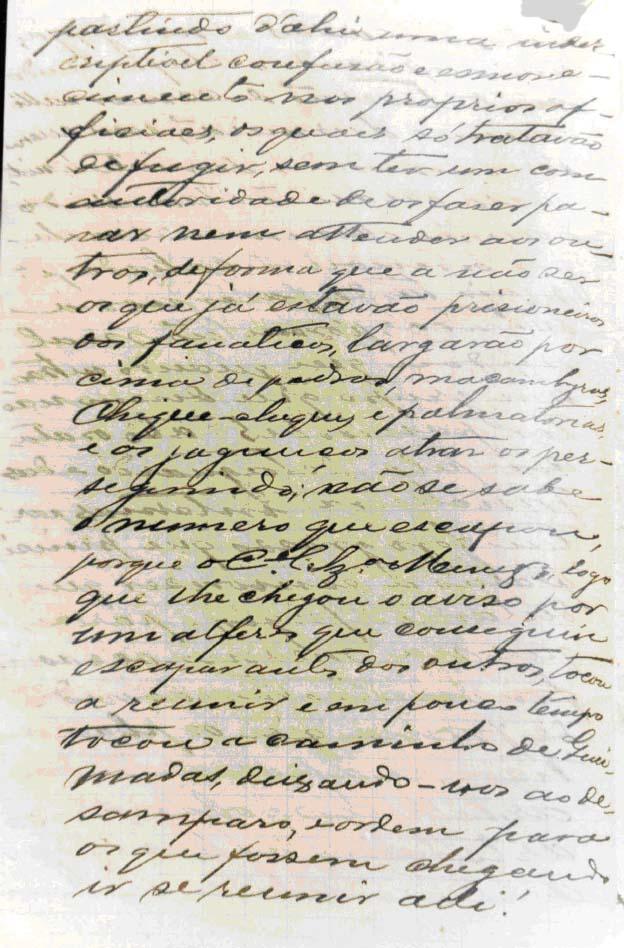 partindo d'ahi uma indes
criptivel confusão e esmore-
cimento nos proprios of-
ficiaes, os quaes só tratavão
de fugir, sem ter um com
autoridade de os faser pa-
rar nem attender aos ou-
tros, de forma que a não ser
os que já estavão prisioneiros
dos fanaticos, largarão por
cima de pedras, macambyras,
Chique-chiques e palmatorias,
e os jagunços atraz os per-
seguindo; não se sabe
o numero que escapou,
porque o logo
que lhe chegou o aviso por
um alferes que conseguiu
escapar antes dos outros, tocou
a reunir e em pouco tempo
tocou a caminho de Quei-
madas, deixando-nos ao de-
samparo, e ordem para
os que fossem chegando
ir se reunir alli!